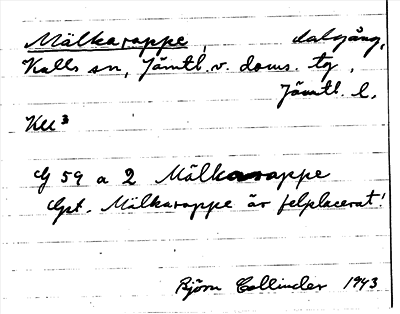 Mälkarappe, dalgång,
Kalls sn, Jämtl. v. doms. tg,
Jämtl. l.
KU³
G 59 a 2 Mälkarappe
Gpt. Mälkarappe är felplacerat!
Björn Collinder 1943